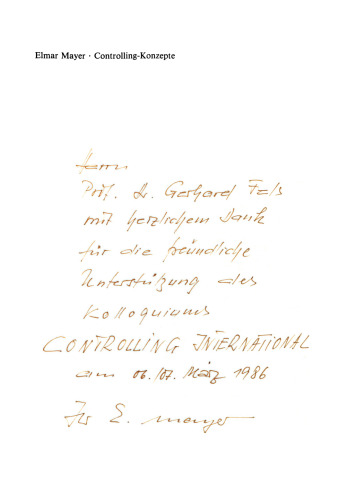 Elmar Mayer · Controlling-Konzepte
Herrn
Prof. Dr. Gerhard Fels
mit herzlichem Dank
für die freundliche
Unterstützung des
Kolloquiums
CONTROLLING INTERNATIONAL
am 06./07. März 1986
Ihr E. Mayer